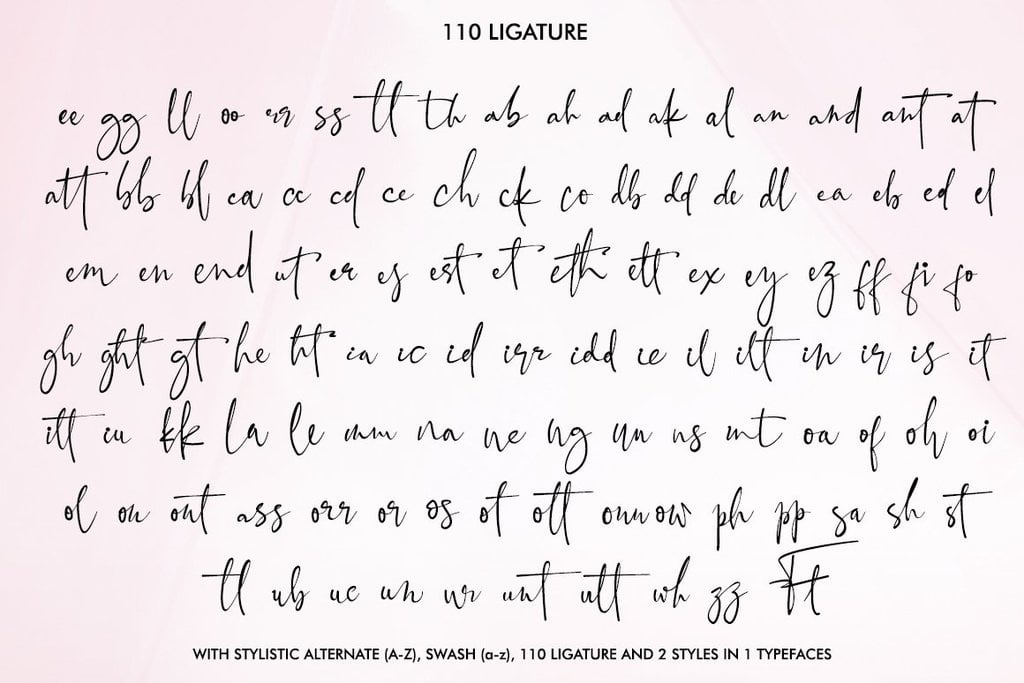 110 LIGATURE
ee gg ll oo rr ss tt th ab ah ad ak al an and ant at
att bb bl ca cc cd ce ch ck co db dd de dl ea eb ed el
em en end ut er es est et eth ett ex ey ez ff fi fo
gh ght gt he ht ia ic id irr idd ie il ilt in ir is it
itt iu kk la le mm na ne ng nn ns nt oa of oh oi
ol on ont ass orr or os ot ott ow ph pp sa sh st
tl ub uc un ur unt utt wh zz Ft
WITH STYLISTIC ALTERNATE (A-Z), SWASH (a-z), 110 LIGATURE AND 2 STYLES IN 1 TYPEFACES